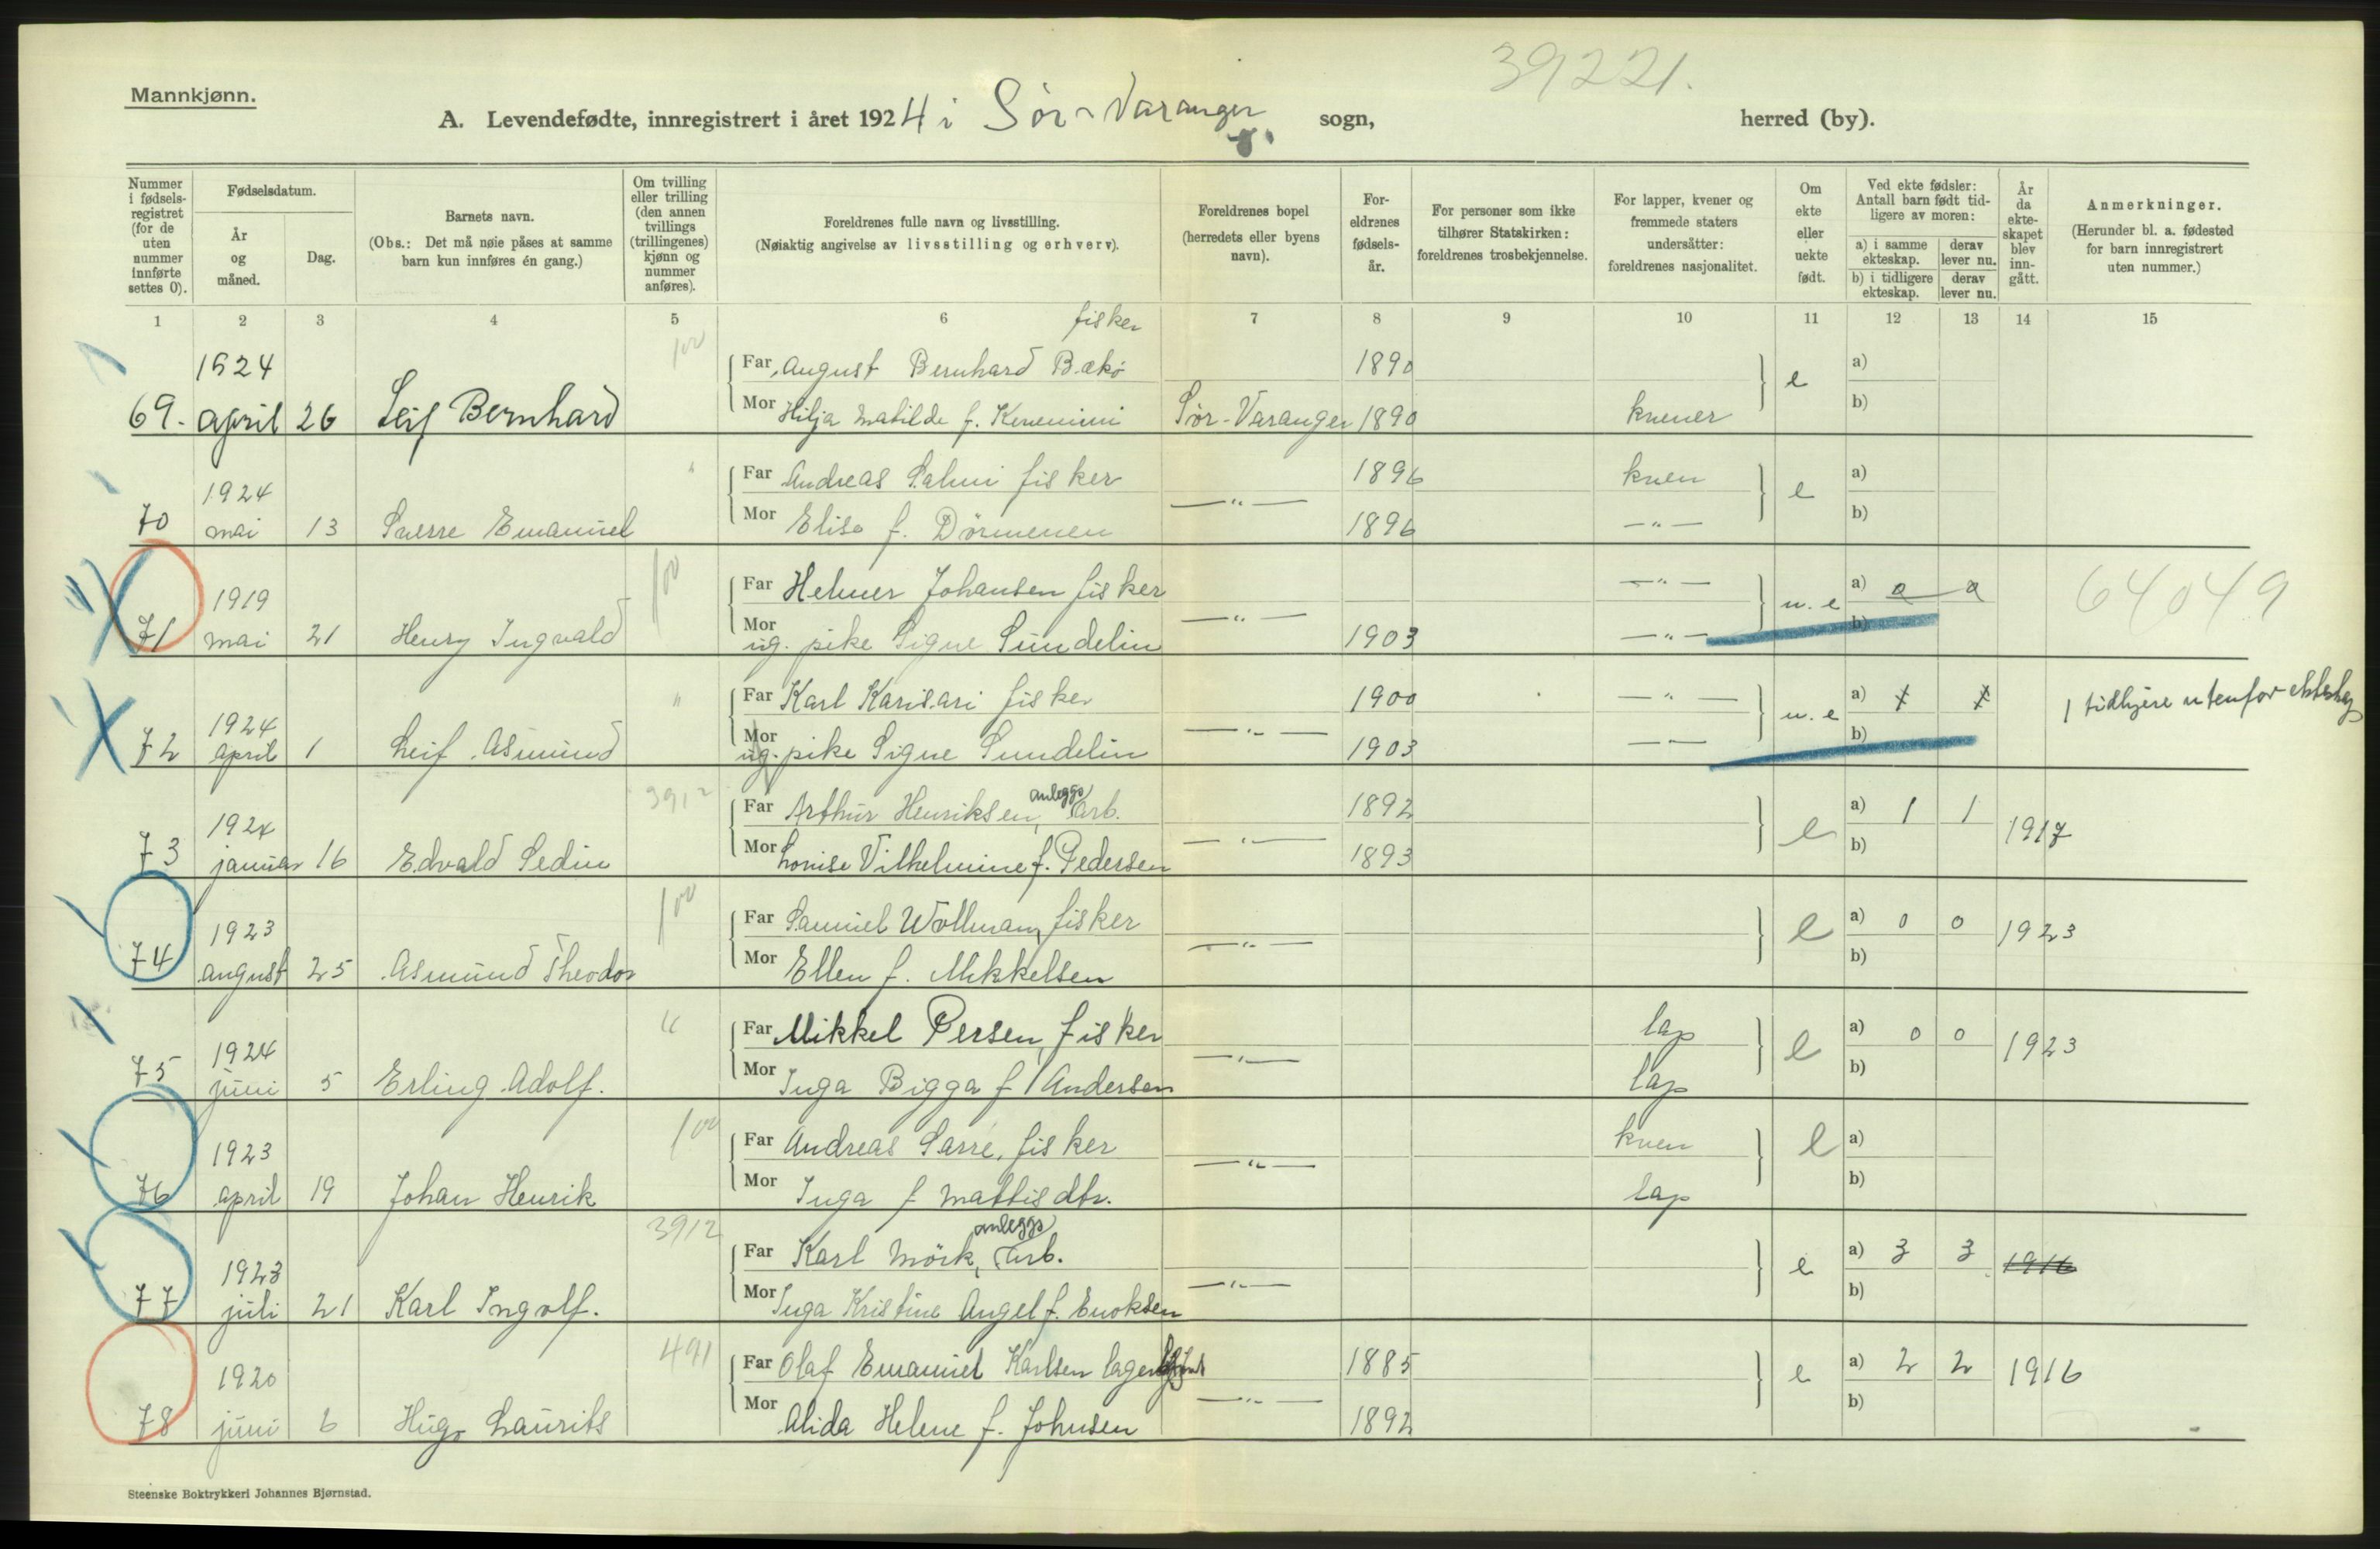 39221.
Mannkjønn.
A. Levendefødte, innregistrert i året 1924 i Sör-Varanger sogn, herred (by).
Nummer i fødsels-registret (for de uten nummer innførte settes 0).
Fødselsdatum.
År og måned.
Dag.
Barnets navn.
(Obs.: Det må nøie påses at samme barn kun innføres én gang.)
Om tvilling eller trilling (den annen tvillings (trillingenes) kjønn og nummer anføres).
Foreldrenes fulle navn og livsstilling.
(Nøiaktig angivelse av livsstilling og erhverv).
Foreldrenes bopel (herredets eller byens navn).
For-eldrenes fødsels-år.
For personer som ikke tilhører Statskirken: foreldrenes trosbekjennelse.
For lapper, kvener og fremmede staters undersåtter: foreldrenes nasjonalitet.
Om ekte eller uekte født.
Ved ekte fødsler: Antall barn født tid-ligere av moren:
a) i samme ekteskap.
derav lever nu.
b) i tidligere ekteskap.
derav lever nu.
År da ekte-skapet blev inn-gått.
Anmerkninger.
(Herunder bl. a. fødested for barn innregistrert uten nummer.)
1 2 3 4 5 6 7 8 9 10 11 12 13 14 15
fisker
1924 100 Far August Bernhard Bækö 1890 e a)
69. april 26 Leif Bernhard Mor Hilja Matilde f. Sör-Varanger 1890 kvener b)
1924 " Far Andreas Salmi fisker 1896 kven e a)
70 mai 13 Sverre Emanuel Mor Elise f. Dörmenen —"— 1896 —"— b)
1919 100 Far Helmer Johansen fisker —"— u. e a) 64049
71 mai 21 Henry Ingvald Mor ug. pike Signe Sundelin —"— 1903 —"— b)
1924 " Far Karl Karisari fisker 1900 —"— u. e a) 1 tidligere utenfor ekteskap
72 april 1 Leif Asmund Mor ug. pike Signe Sundelin —"— 1903 —"— b)
1924 3912 Far Arthur Henriksen, anleggs arb. 1892 e a) 1 1 1917
73 januar 16 Edvald Sedin Mor Lovise Vilhelmine f. Pedersen —"— 1893 b)
1923 100 Far Samuel Wollmann, fisker e a) 0 0 1923
74 august 25 Asmund Theodor Mor Ellen f. Mikkelsen —"— b)
1924 " Far Mikkel Persen, fisker lap e a) 0 0 1923
75 juni 5 Erling Adolf. Mor Inga Bigga f. Andersen —"— lap b)
1923 100 Far Andreas Sarre, fisker kven e a)
76 april 19 Johan Henrik Mor Inga f. Mattisdtr. —"— lap b)
1923 3912 Far Karl Mörk, anleggs arb. e a) 3 3 1916
77 juli 21 Karl Ingolf. Mor Inga Kristine Angel f. Enoksen —"— b)
1920 491 Far Olaf Emanuel Karlsen 1885 e a) 2 2 1916
78 juni 6 Hugo Laurits Mor Alida Helene f. Johnsen —"— 1892 b)
Steenske Boktrykkeri Johannes Bjørnstad.